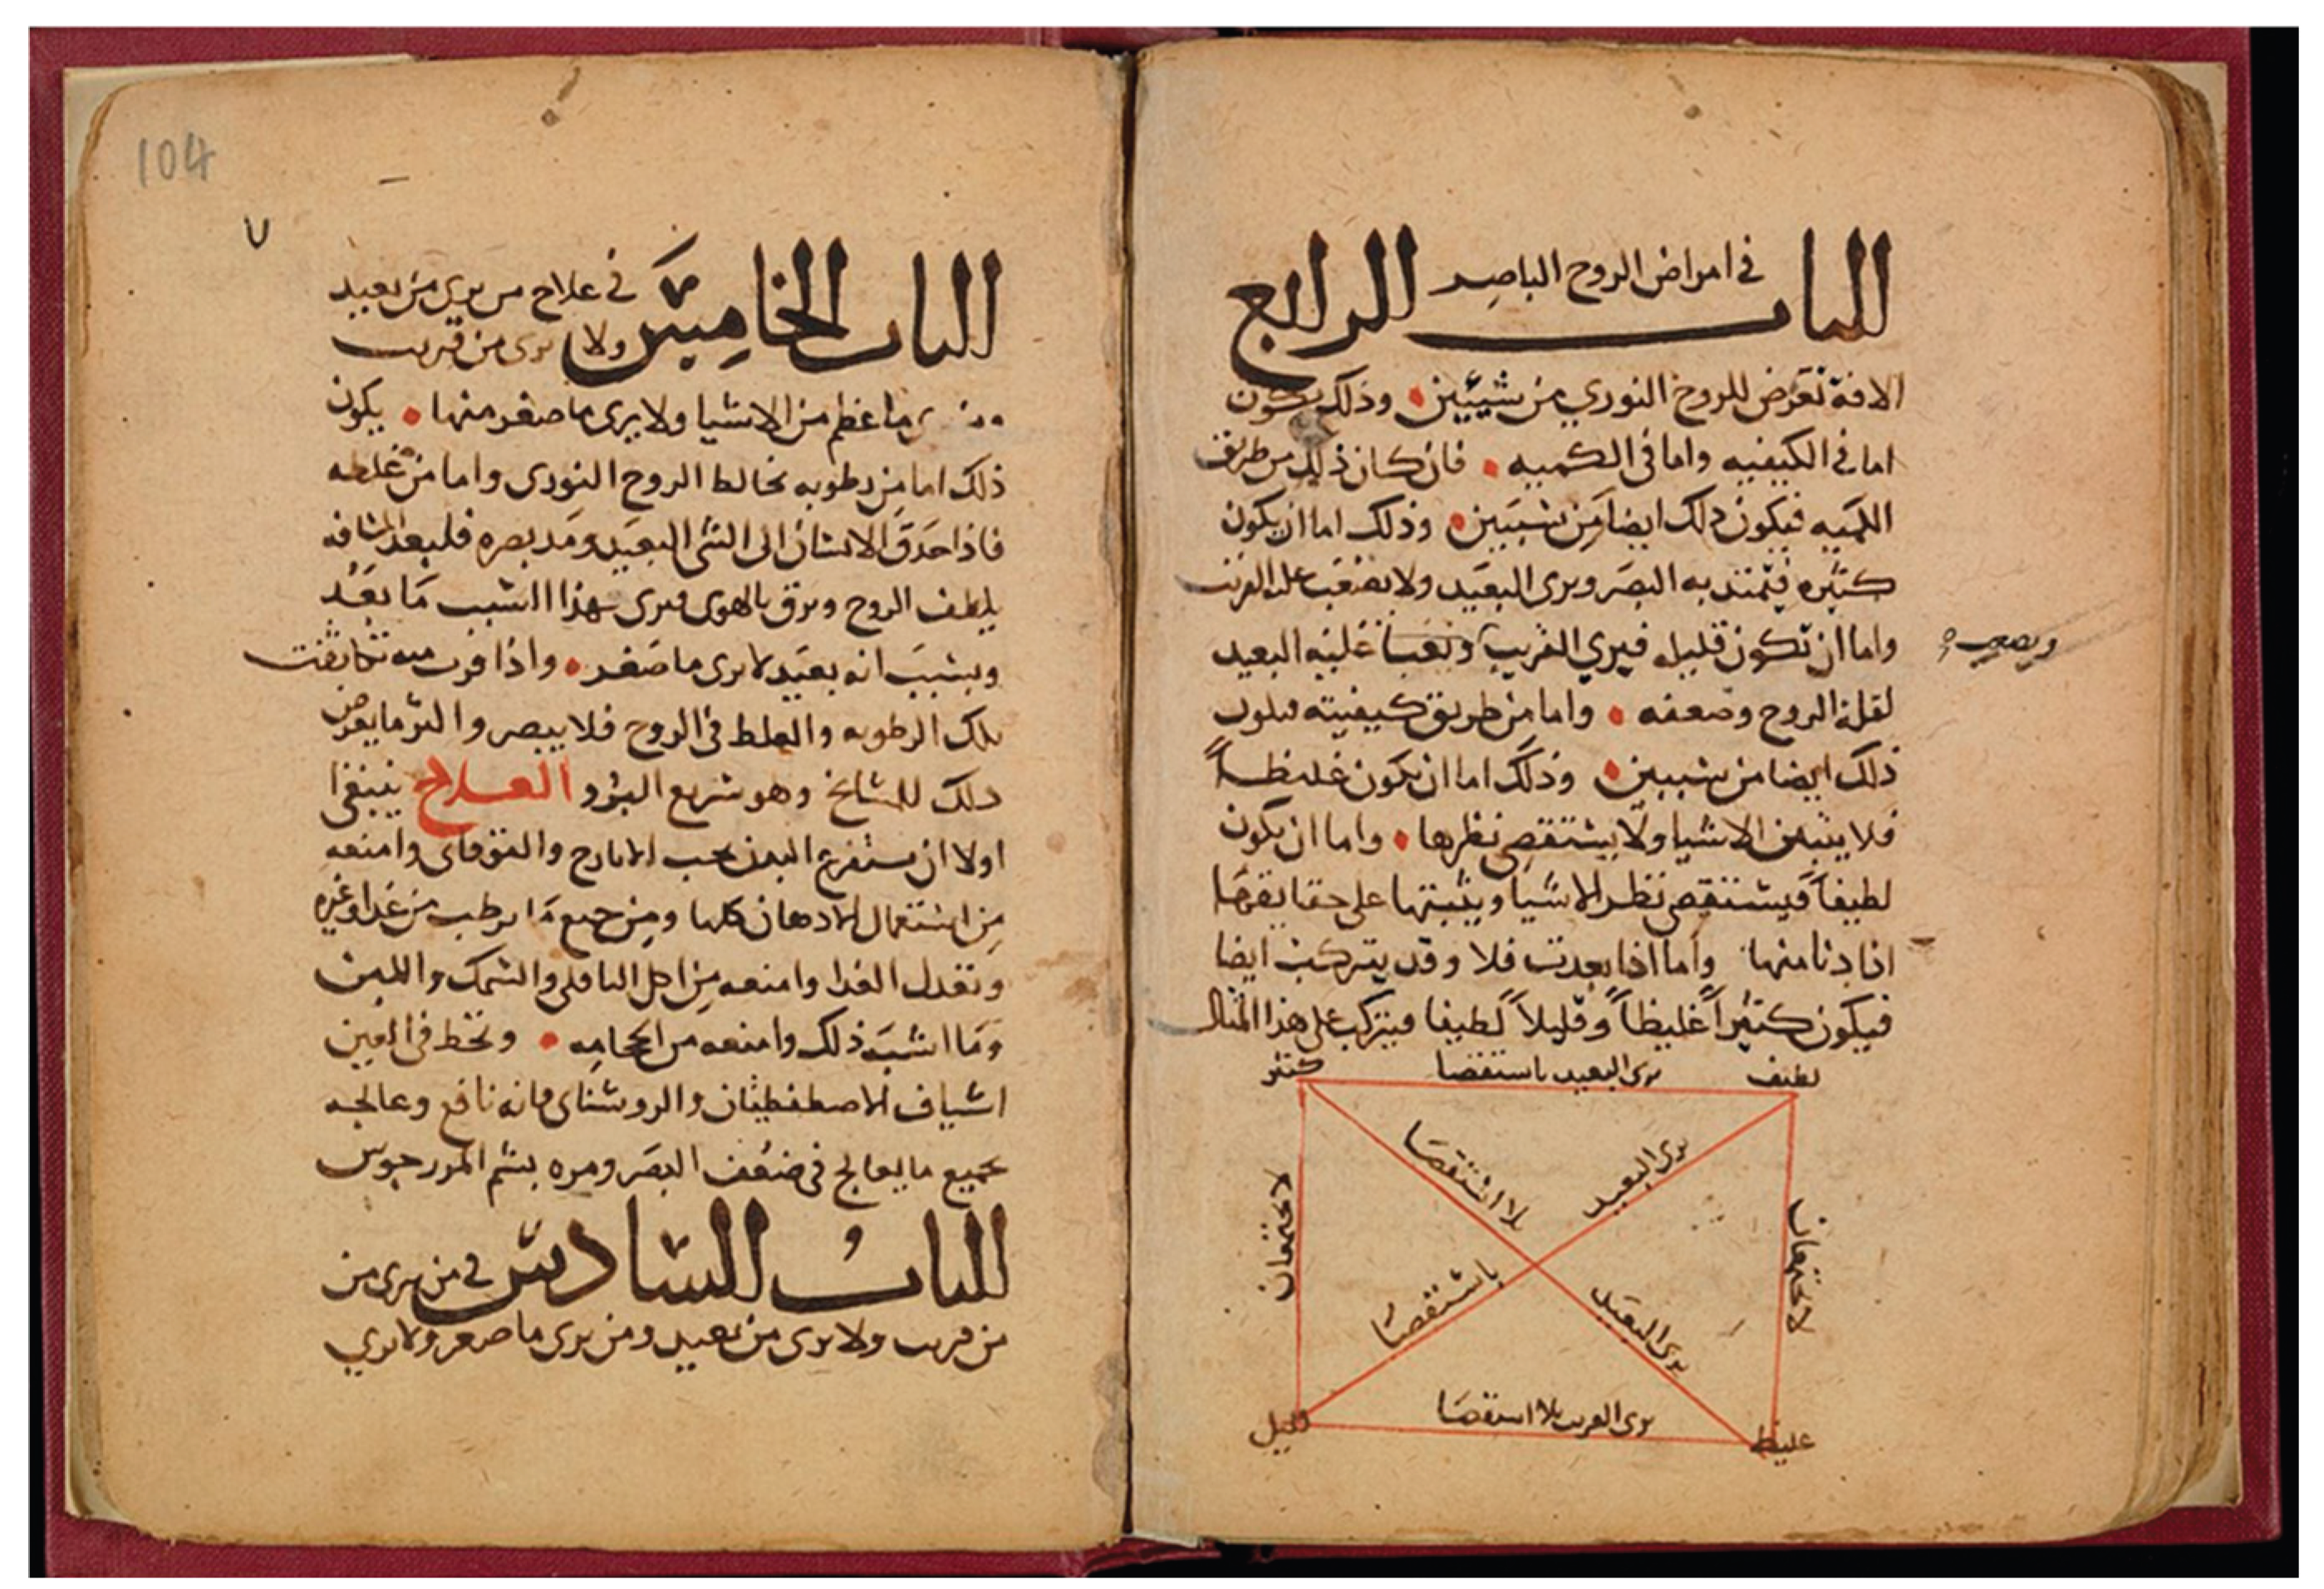 الباب الرابع
في امراض الروح الباصر
الافة تعرض للروح النوري من شيئين وذلك يكون
اما في الكيفيه واما في الكميه فان كان ذلك من طريق
الكميه فيكون ذلك ايضا من شيئين وذلك اما ان يكون
كثيره فيمتد به البصر ويرى البعيد ولا يصعب عليه القريب
واما ان تكون قليله فيري القريب عليه البعيد
ويصعب
لقلة الروح وضعفه واما من طريق كيفيته فيكون
ذلك ايضا من سببين وذلك اما ان يكون غليظاً
فلا يثبت الاشيا ولا يستقصي نظرها واما ان يكون
لطيفاً فيستقصي نظر الاشيا ويثبتها على حقايقها
اذا دنا منها واما اذا بعدت فلا وقد يتركب ايضا
فيكون كثيراً غليظاً وقليلاً لطيفا فيتركب على هذا المثال
لطيف
يرى البعيد باستقصا
كثير
يرى البعيد
بلا استقصا
لا يجتمعان
لا يجتمعان
يرى البعيد
باستقصا
غليظ
يرى القريب بلا استقصا
قليل
104
٧
الباب الخامس
في علاج من يرى من بعيد
ولا يرى من قريب
ما عظم من الاشيا ولا يرى ما صغر منها يكون
ذلك اما من رطوبه تخالط الروح النوري واما من غلظه
فاذا حدق الانسان الى الشي البعيد ومد بصره فلبعد المسافه
يلطف الروح ويرق بالهوى فيرى بهذا السبب ما بعد
وبسبب انه بعيد لا يرى ما صغر واذا قرب منه تكاثفت
تلك الرطوبه والغلظ في الروح فلا يبصر واكثر ما يعرض
ذلك للمشايخ وهو سريع البرؤ العلاج ينبغي
اولا ان يستفرغ البدن بحب الايارج والقوقاى وامنعه
من استعمال الادهان كلها ومن جميع ما يرطب من غدا وغيره
وتعدل الغدا وامنعه من اكل الباقلى والسمك واللبن
وما اشبه ذلك وامنعه من الحجامه وتخط في العين
اشياف الاصطفطيقان والروشناى فانه نافع وعالجه
بجميع ما يعالج في ضعف البصر ومره بشم المرزجوش
الباب السادس في من يرى من
من قريب ولا يرى من بعيد ومن يرى ما صغر ولا يري